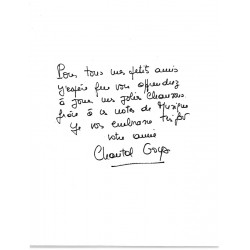 Pour tous mes petits amis
j'espère que vous apprendrez
à jouer mes jolies Chansons
grâce à ces notes de Musique
Je vous embrasse très fort
votre amie
Chantal Goya